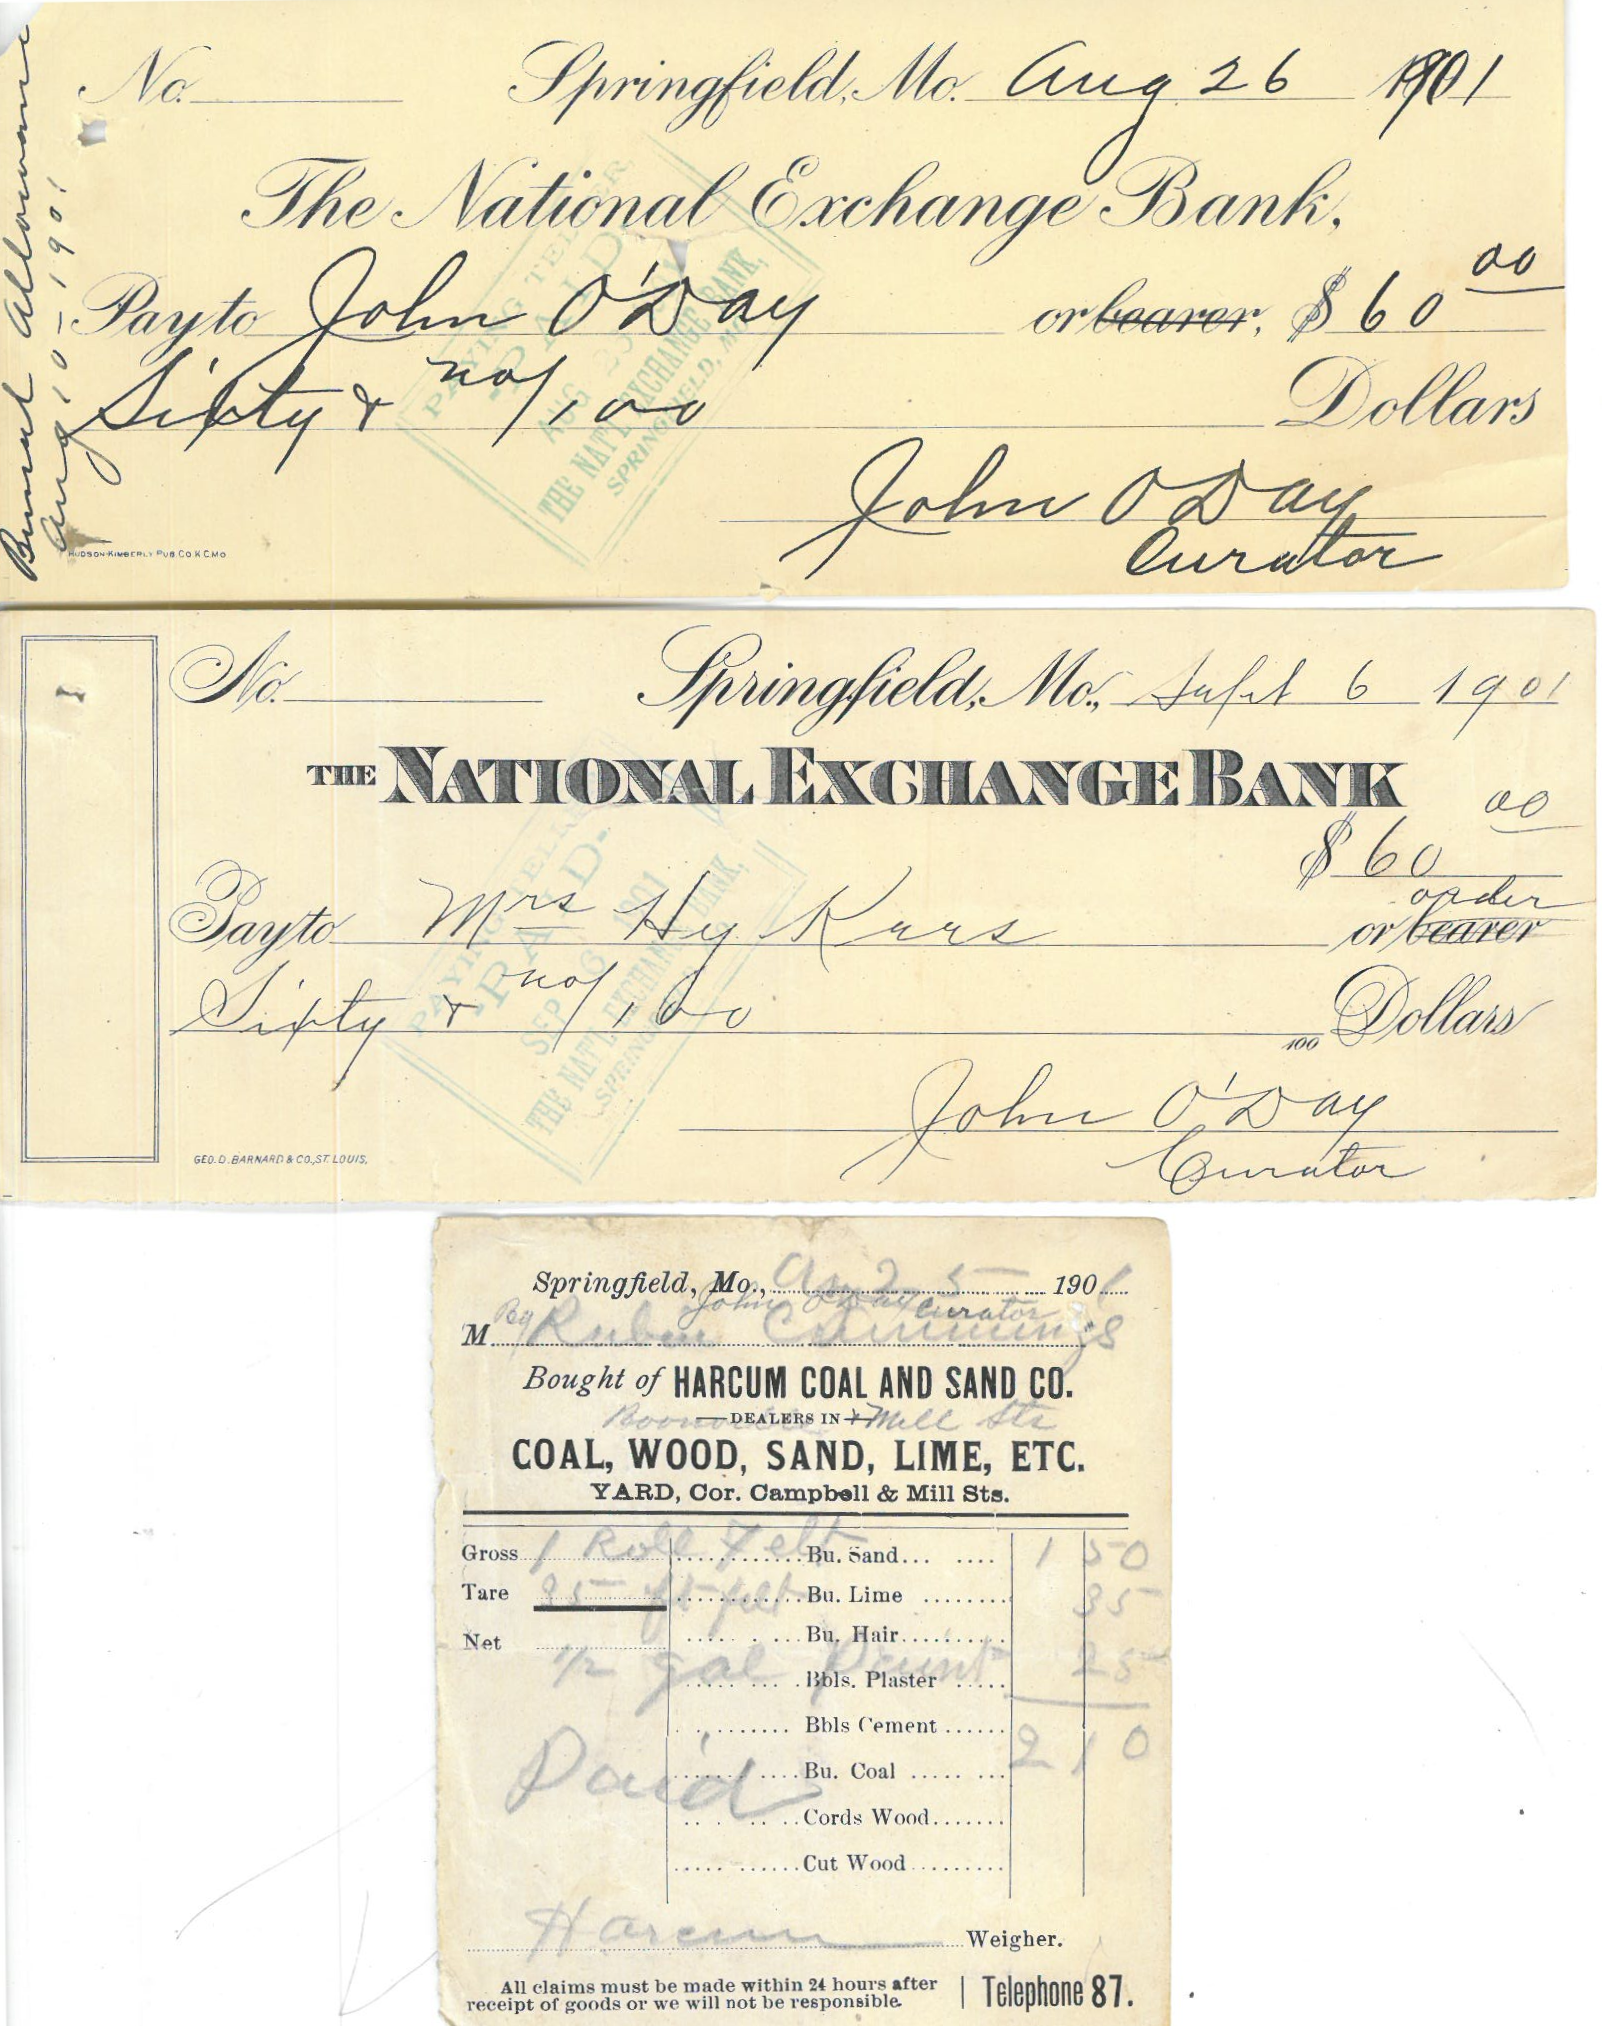 No. Springfield, Mo. Aug 26 1901
The National Exchange Bank,
Pay to John O'Day or bearer, $ 60 00
Sixty & no/100 Dollars
John O'Day
Curator
HUDSON-KIMBERLY PUB. CO. K.C. MO
Aug 10-1901
PAYING TELLER
PAID
AUG
THE NAT'L EXCHANGE BANK,
SPRINGFIELD, MO.
No. Springfield, Mo., Sept 6 1901
THE NATIONAL EXCHANGE BANK
$ 60 00
order
Pay to Mrs Hy or bearer
Sixty & no/100 100 Dollars
John O'Day
Curator
GEO. D. BARNARD & CO., ST. LOUIS.
PAYING TELLER
PAID
SEP 6 1901
THE NAT'L EXCHANGE BANK,
Springfield, Mo., 1901
John O'Day Curator
M By Cummings
Bought of HARCUM COAL AND SAND CO.
DEALERS IN
Boonville & Mill Sts
COAL, WOOD, SAND, LIME, ETC.
YARD, Cor. Campbell & Mill Sts.
Gross 1 Roll Felt Bu. Sand 1 50
Tare 35 ft felt Bu. Lime 35
Net Bu. Hair
1/2 gal Paint Bbls. Plaster 25
Bbls Cement 2 10
Paid Bu. Coal
Cords Wood
Cut Wood
Harcum Weigher.
All claims must be made within 24 hours after
receipt of goods or we will not be responsible.
Telephone 87.